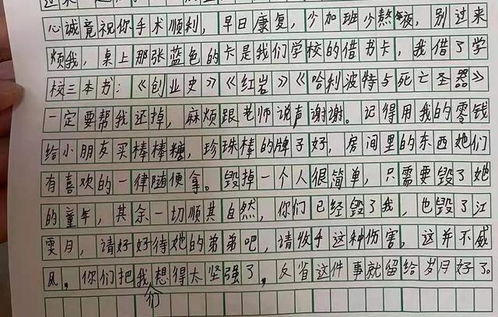 心诚竟祝你手术顺利，早日康复，少加班少熬夜，别过来
烦我，桌上那张蓝色的卡是我们学校的借书卡，我借了学
校三本书：《创业史》《红岩》《哈利波特与死亡圣器》
一定要帮我还掉，麻烦跟老师说声谢谢。记得用我的零钱
给小朋友买棒棒糖，珍珠棒的牌子好，房间里的东西她们
有喜欢的一律随便拿。毁掉一个人很简单，只需要毁了她
的童年，其余一切顺其自然，你们已经毁了我，也毁了江
雯月，请好好待她的弟弟吧，请收手这种伤害，这并不威
风。你们把我们想得太坚强了，反省这件事就留给岁月好了。